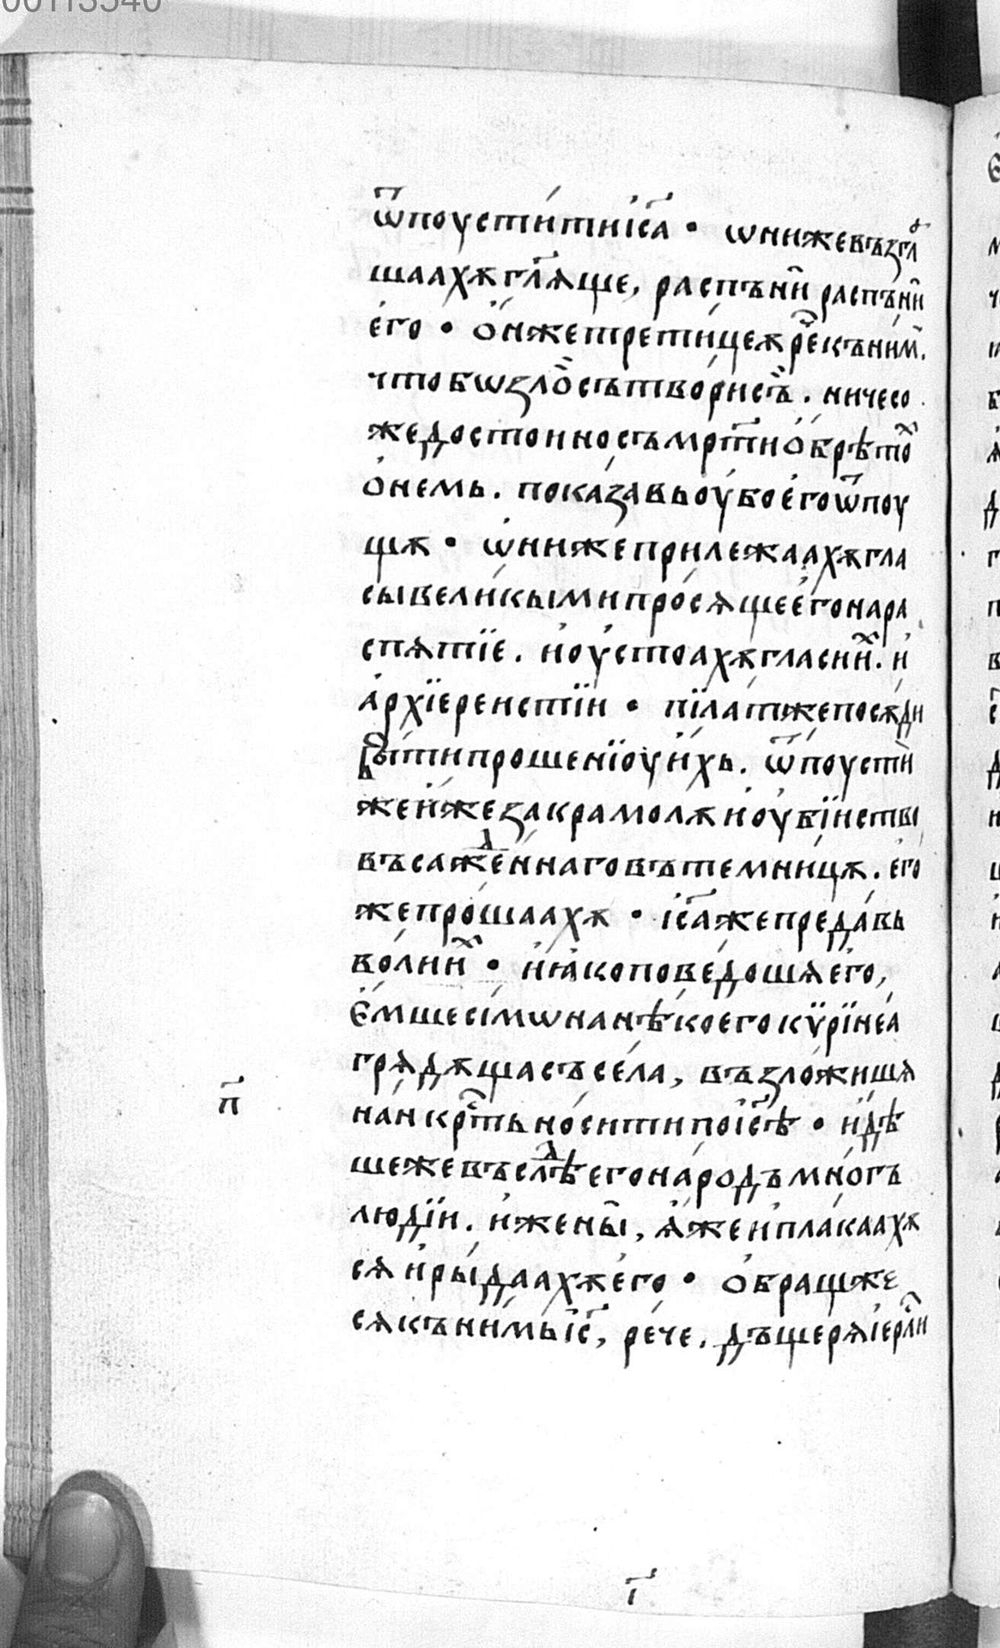 00113540
ѿпоустити іс҃а • ѡни же възгла
шаахѫ гл҃ѧще, распъни распъни
его • Онъ же третицеѫ рече къ ним.
что бѡ зло сътвори съ. ничесо
же достоино съмрти обрѣтох
о немь. показавь оубо его ѿпоу
щѫ • ѡни же прилежаахѫ гла
сы великыми просѧще его на ра
спѧтїе. и оустоахѫ гласи их. и
архїереистїи • пїлат же посѫди
быти прошенїоу ихь. ѿпоусти
же иже за крамолѫ и оубїиствы
въсажденнаго въ темницѫ. его
же прошаахѫ • іс҃а же предавь
воли их • и ꙗко поведошѧ его,
Емше сімѡна нѣкоего кѵрїнеа
грѧдѫща съ села, възложишѧ
п
на нь крстъ носити по іс҃ѣ • идѣ
ше же въ слѣд его народъ многъ
людїи. и жены, ѧже и плакаахѫ
сѧ и рыдаахѫ его • Обращ же
сѧ къ нимь іс҃, рече. дъщерѧ іерлми
і